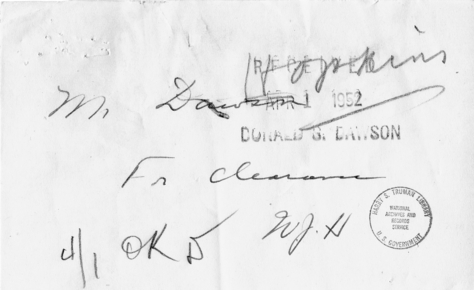 RECEIVED
APR 1 1952
DONALD S. DAWSON
Mr. Dawson
For Clearance
WJH
4/1 OK D
HARRY S. TRUMAN LIBRARY
NATIONAL
ARCHIVES AND
RECORDS
SERVICE
U. S. GOVERNMENT